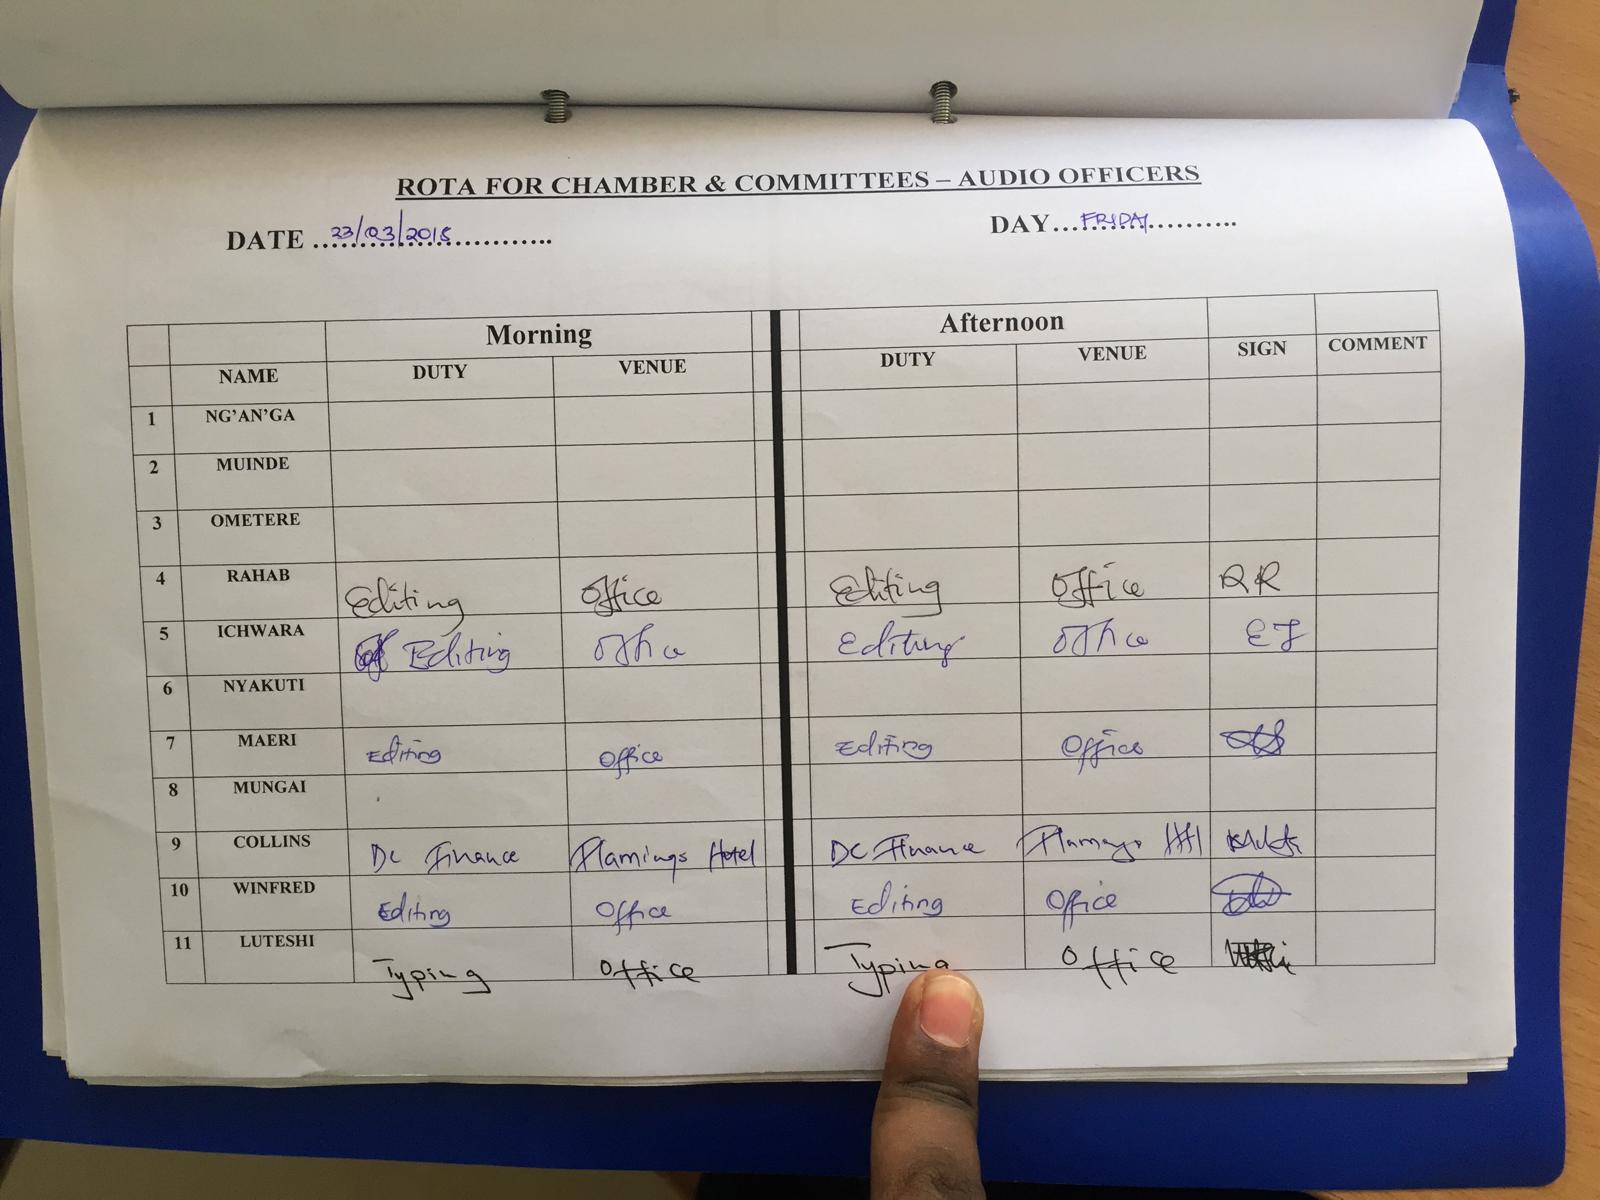 ROTA FOR CHAMBER & COMMITTEES – AUDIO OFFICERS
DATE ... 23/03/2018 ........... DAY... FRIDAY ...........
Morning Afternoon
NAME DUTY VENUE DUTY VENUE SIGN COMMENT
1 NG'AN'GA
2 MUINDE
3 OMETERE
4 RAHAB Editing Office Editing Office RR
5 ICHWARA Editing Office Editing Office EJ
6 NYAKUTI
7 MAERI Editing Office Editing Office
8 MUNGAI
9 COLLINS DC Finance Flamings Hotel DC Finance
10 WINFRED Editing Office Editing Office
11 LUTESHI Typing Office Typing Office